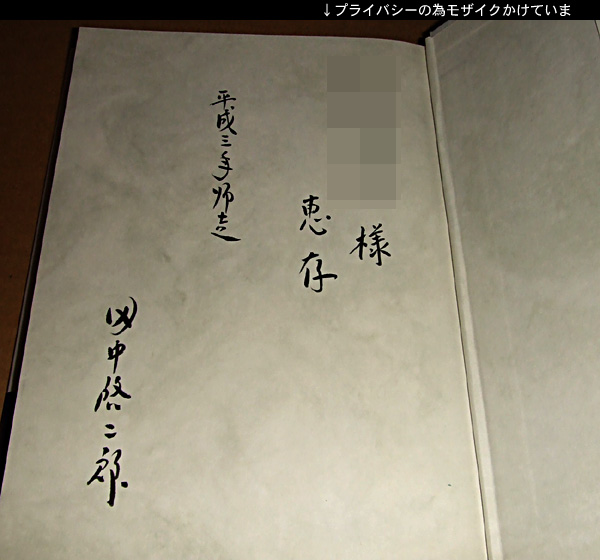 ↓プライバシーの為モザイクかけていま
様
恵存
平成三年师走
田中啓二郎